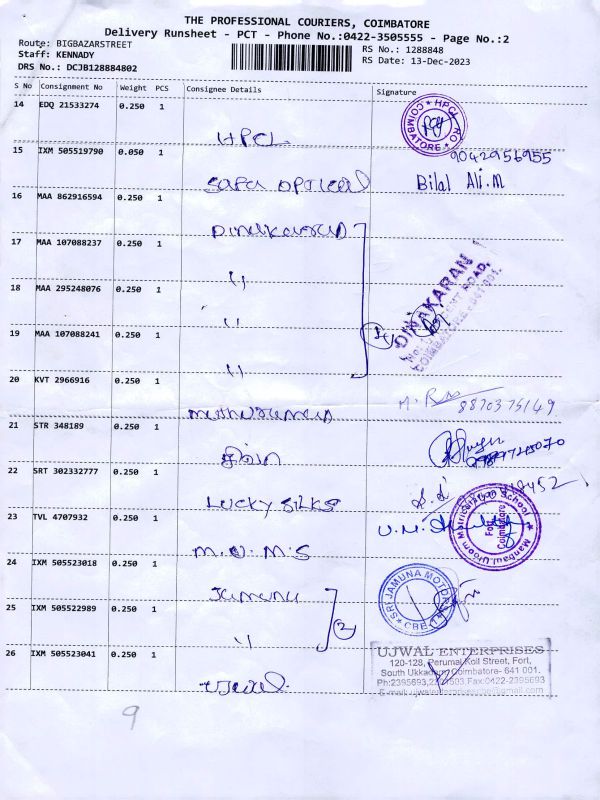 THE PROFESSIONAL COURIERS, COIMBATORE
Delivery Runsheet - PCT - Phone No.:0422-3505555 - Page No.:2
Route: BIGBAZARSTREET
Staff: KENNADY
DRS No.: DCJB128884802
RS No.: 1288848
RS Date: 13-Dec-2023
S No Consignment No Weight PCS Consignee Details Signature
14 EDQ 21533274 0.250 1 HPCL
HPCL RO COIMBATORE
15 IXM 505519790 0.050 1
9042956955
Bilal Ali.M
16 MAA 862916594 0.250 1 Dinakaran
17 MAA 107088237 0.250 1 "
DINAKARAN
18 MAA 295248076 0.250 1 "
19 MAA 107088241 0.250 1 "
20 KVT 2966916 0.250 1
8870375149
21 STR 348189 0.250 1
22 SRT 302332777 0.250 1 LUCKY SILKS
23 TVL 4707932 0.250 1 M.U.M.S
Manbaul Uloom Matriculation School
Fort
Coimbatore
24 IXM 505523018 0.250 1 Jamuna
SRI JAMUNA MOTORS
CBE
25 IXM 505522989 0.250 1 "
2
26 IXM 505523041 0.250 1 Ujwal
UJWAL ENTERPRISES
120-128, Perumal Koil Street, Fort,
South Ukkadam, Coimbatore- 641 001.
Fax:0422-2395693
9